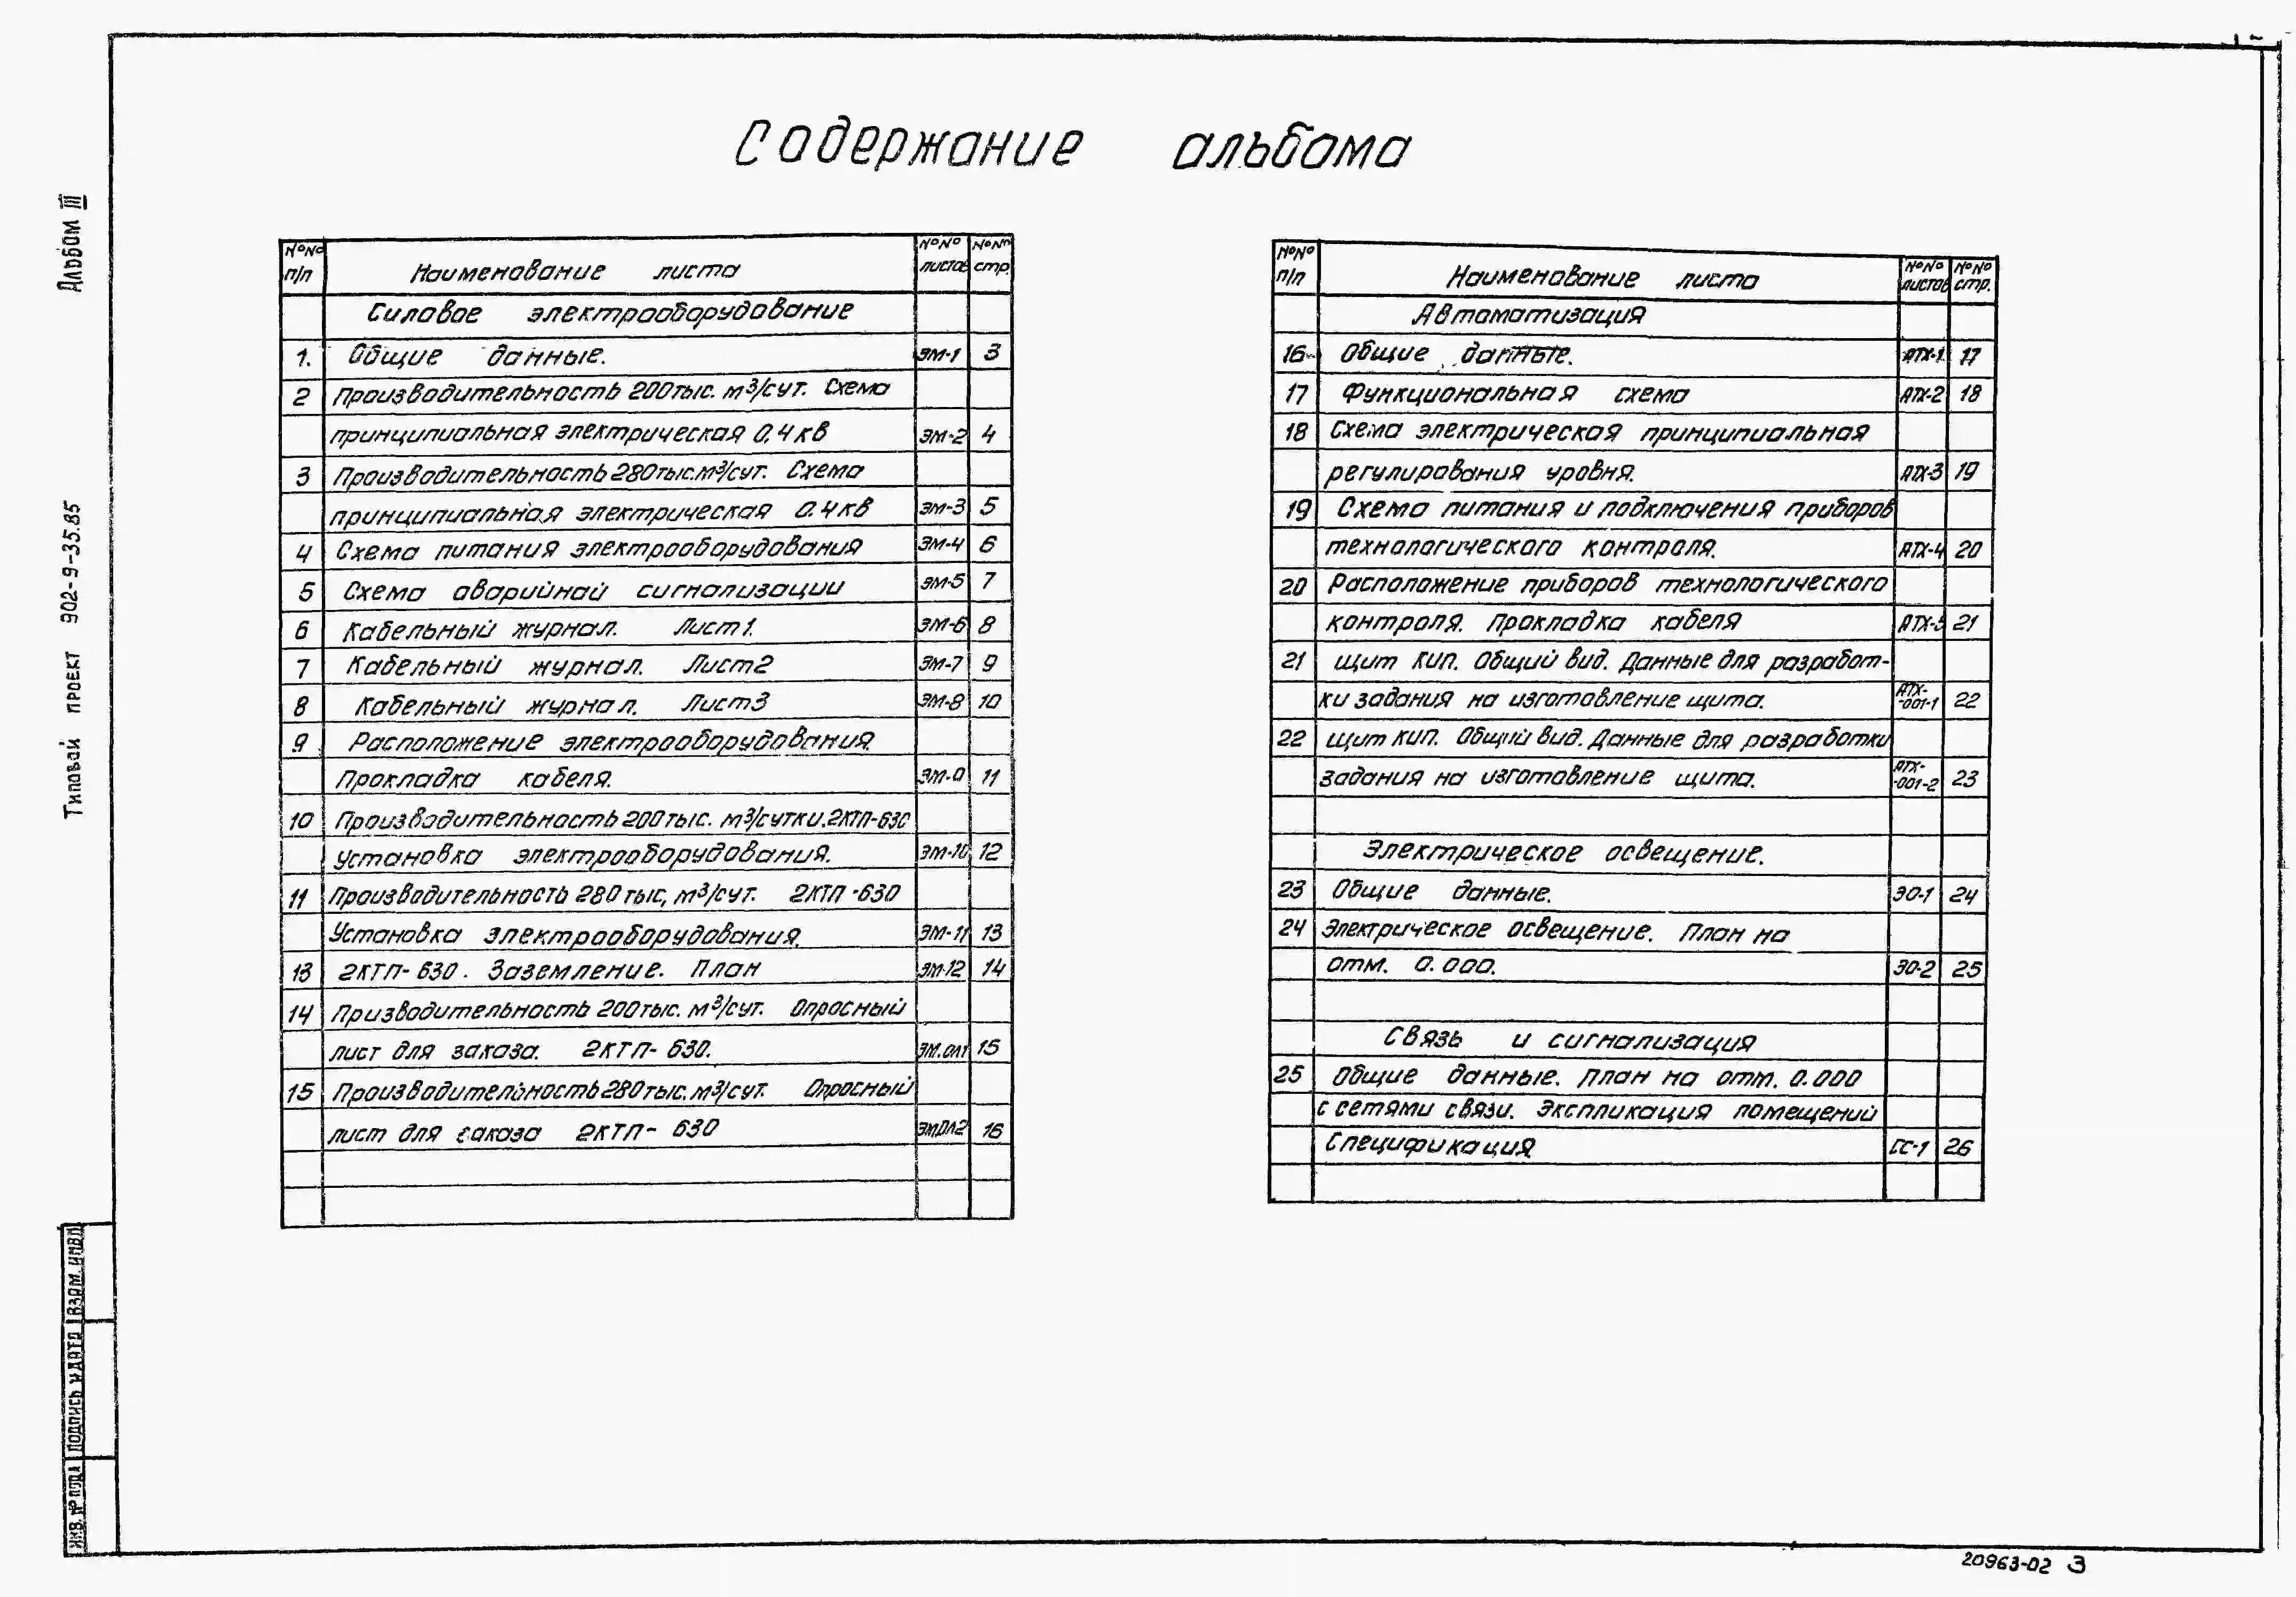 Содержание альбома
Альбом III
Типовой проект 902-9-35.85
№№ п/п Наименование листа №№ листов №№ стр.
Силовое электрооборудование
1. Общие данные. ЭМ-1 3
2 Производительность 200тыс. м³/сут. Схема
принципиальная электрическая 0.4кв ЭМ-2 4
3 Производительность 280тыс.м³/сут. Схема
принципиальная электрическая 0.4кв ЭМ-3 5
4 Схема питания электрооборудования ЭМ-4 6
5 Схема аварийной сигнализации ЭМ-5 7
6 Кабельный журнал. Лист1. ЭМ-6 8
7 Кабельный журнал. Лист2 ЭМ-7 9
8 Кабельный журнал. Лист3 ЭМ-8 10
9 Расположение электрооборудования.
Прокладка кабеля. 11
10 Производительность 200тыс. м³/сутки.2КТП-630
Установка электрооборудования. ЭМ-10 12
11 Производительность 280 тыс, м³/сут. 2КТП-630
Установка электрооборудования. ЭМ-11 13
13 2КТП-630. Заземление. План ЭМ-12 14
14 Призводительность 200тыс. м³/сут. Опросный
лист для заказа. 2КТП-630. ЭМ.ОЛ1 15
15 Производительность 280тыс. м³/сут. Опросный
лист для заказа 2КТП-630 ЭМ.ОЛ2 16
№№ п/п Наименование листа №№ листов №№ стр.
Автоматизация
16 Общие данные. АТХ-1 17
17 Функциональная схема АТХ-2 18
18 Схема электрическая принципиальная
регулирования уровня. АТХ-3 19
19 Схема питания и подключения приборов
технологического контроля. АТХ-4 20
20 Расположение приборов технологического
контроля. Прокладка кабеля АТХ-5 21
21 Щит КИП. Общий вид. Данные для разработ-
ки задания на изготовление щита. АТХ-001-1 22
22 Щит КИП. Общий вид. Данные для разработки
задания на изготовление щита. АТХ-001-2 23
Электрическое освещение.
23 Общие данные. ЭО-1 24
24 Электрическое освещение. План на
отм. 0.000. ЭО-2 25
Связь и сигнализация
25 Общие данные. План на отм. 0.000
с сетями связи. Экспликация помещений
Спецификация СС-1 26
Инв. № подл Подпись и дата Взам. инв.№
20963-02 3